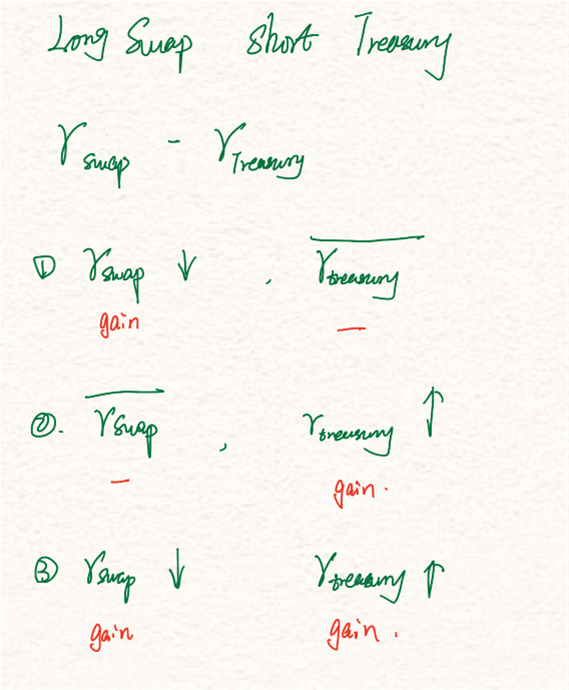 Long Swap short Treasury
r swap - r Treasury
① r swap ↓ , r treasury
gain —
②. r swap , r treasury ↑
— gain.
③ r swap ↓ r treasury ↑
gain gain.